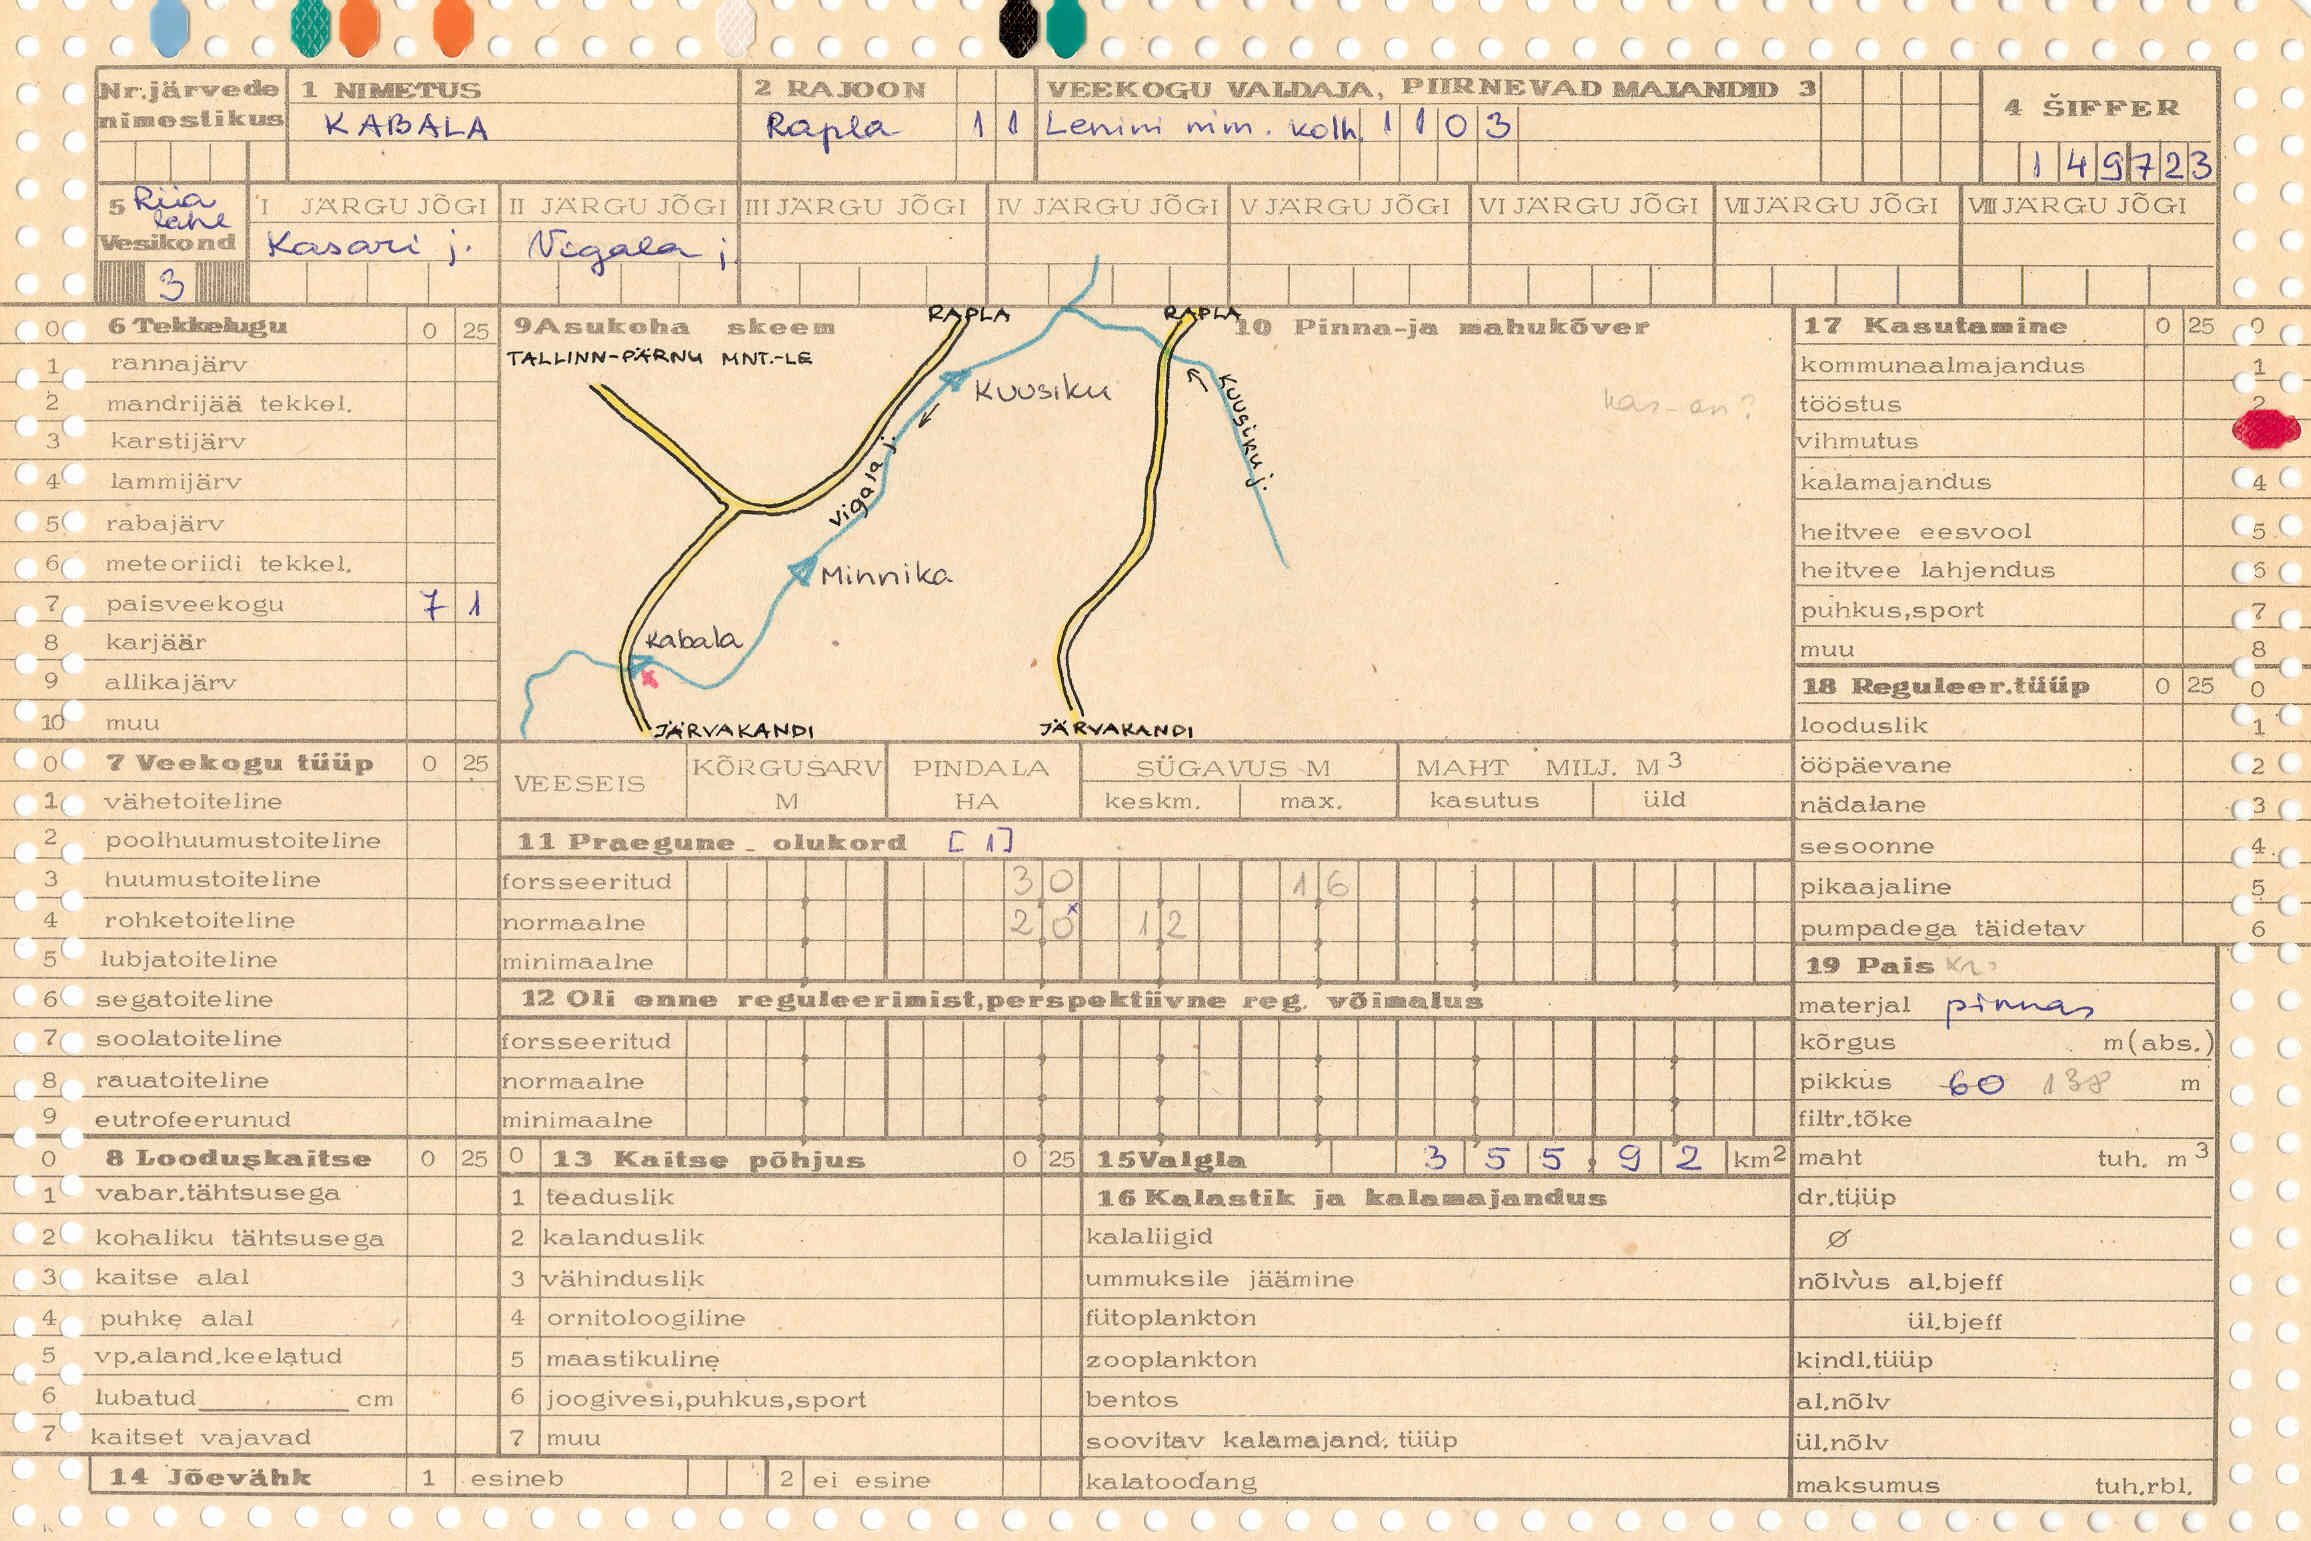 Nr.järvede nimestikus
1 NIMETUS
KABALA
2 RAJOON
Rapla 11
VEEKOGU VALDAJA, PIIRNEVAD MAJANDID 3
Lenini nim. kolh. 1103
4 ŠIFFER
149723
5 Riia lahe
Vesikond
3
I JÄRGU JÕGI
Kasari j.
II JÄRGU JÕGI
Vigala j
III JÄRGU JÕGI
IV JÄRGU JÕGI
V JÄRGU JÕGI
VI JÄRGU JÕGI
VII JÄRGU JÕGI
VIII JÄRGU JÕGI
0 6 Tekkelugu 0 25
1 rannajärv
2 mandrijää tekkel.
3 karstijärv
4 lammijärv
5 rabajärv
6 meteoriidi tekkel.
7 paisveekogu 7 1
8 karjäär
9 allikajärv
10 muu
9 Asukoha skeem
RAPLA
RAPLA
TALLINN-PÄRNU MNT.-LE
Kuusiku
Kuusiku j.
Vigala j.
Minnika
Kabala
JÄRVAKANDI
JÄRVAKANDI
10 Pinna-ja mahukõver
17 Kasutamine 0 25 0
kommunaalmajandus 1
tööstus 2
vihmutus
kalamajandus 4
heitvee eesvool 5
heitvee lahjendus 6
puhkus,sport 7
muu 8
18 Reguleer.tüüp 0 25 0
looduslik 1
ööpäevane 2
nädalane 3
sesoonne 4
pikaajaline 5
pumpadega täidetav 6
0 7 Veekogu tüüp 0 25
1 vähetoiteline
2 poolhuumustoiteline
3 huumustoiteline
4 rohketoiteline
5 lubjatoiteline
6 segatoiteline
7 soolatoiteline
8 rauatoiteline
9 eutrofeerunud
VEESEIS
KÕRGUSARV M
PINDALA HA
SÜGAVUS M
keskm. max.
MAHT MILJ. M3
kasutus üld
11 Praegune olukord [1]
forsseeritud 30 16
normaalne 20x 12
minimaalne
12 Oli enne reguleerimist,perspektiivne reg. võimalus
forsseeritud
normaalne
minimaalne
19 Pais
materjal pinnas
kõrgus m(abs.)
pikkus 60 138 m
filtr.tõke
maht tuh. m3
dr.tüüp
Ø
nõlvus al.bjeff
ül.bjeff
kindl.tüüp
al.nõlv
ül.nõlv
maksumus tuh.rbl.
0 8 Looduskaitse 0 25
1 vabar.tähtsusega
2 kohaliku tähtsusega
3 kaitse alal
4 puhke alal
5 vp.aland.keelatud
6 lubatud cm
7 kaitset vajavad
0 13 Kaitse põhjus 0 25
1 teaduslik
2 kalanduslik
3 vähinduslik
4 ornitoloogiline
5 maastikuline
6 joogivesi,puhkus,sport
7 muu
15 Valgla 355,92 km2
16 Kalastik ja kalamajandus
kalaliigid
ummuksile jäämine
fütoplankton
zooplankton
bentos
soovitav kalamajand. tüüp
kalatoodang
14 Jõevähk 1 esineb 2 ei esine